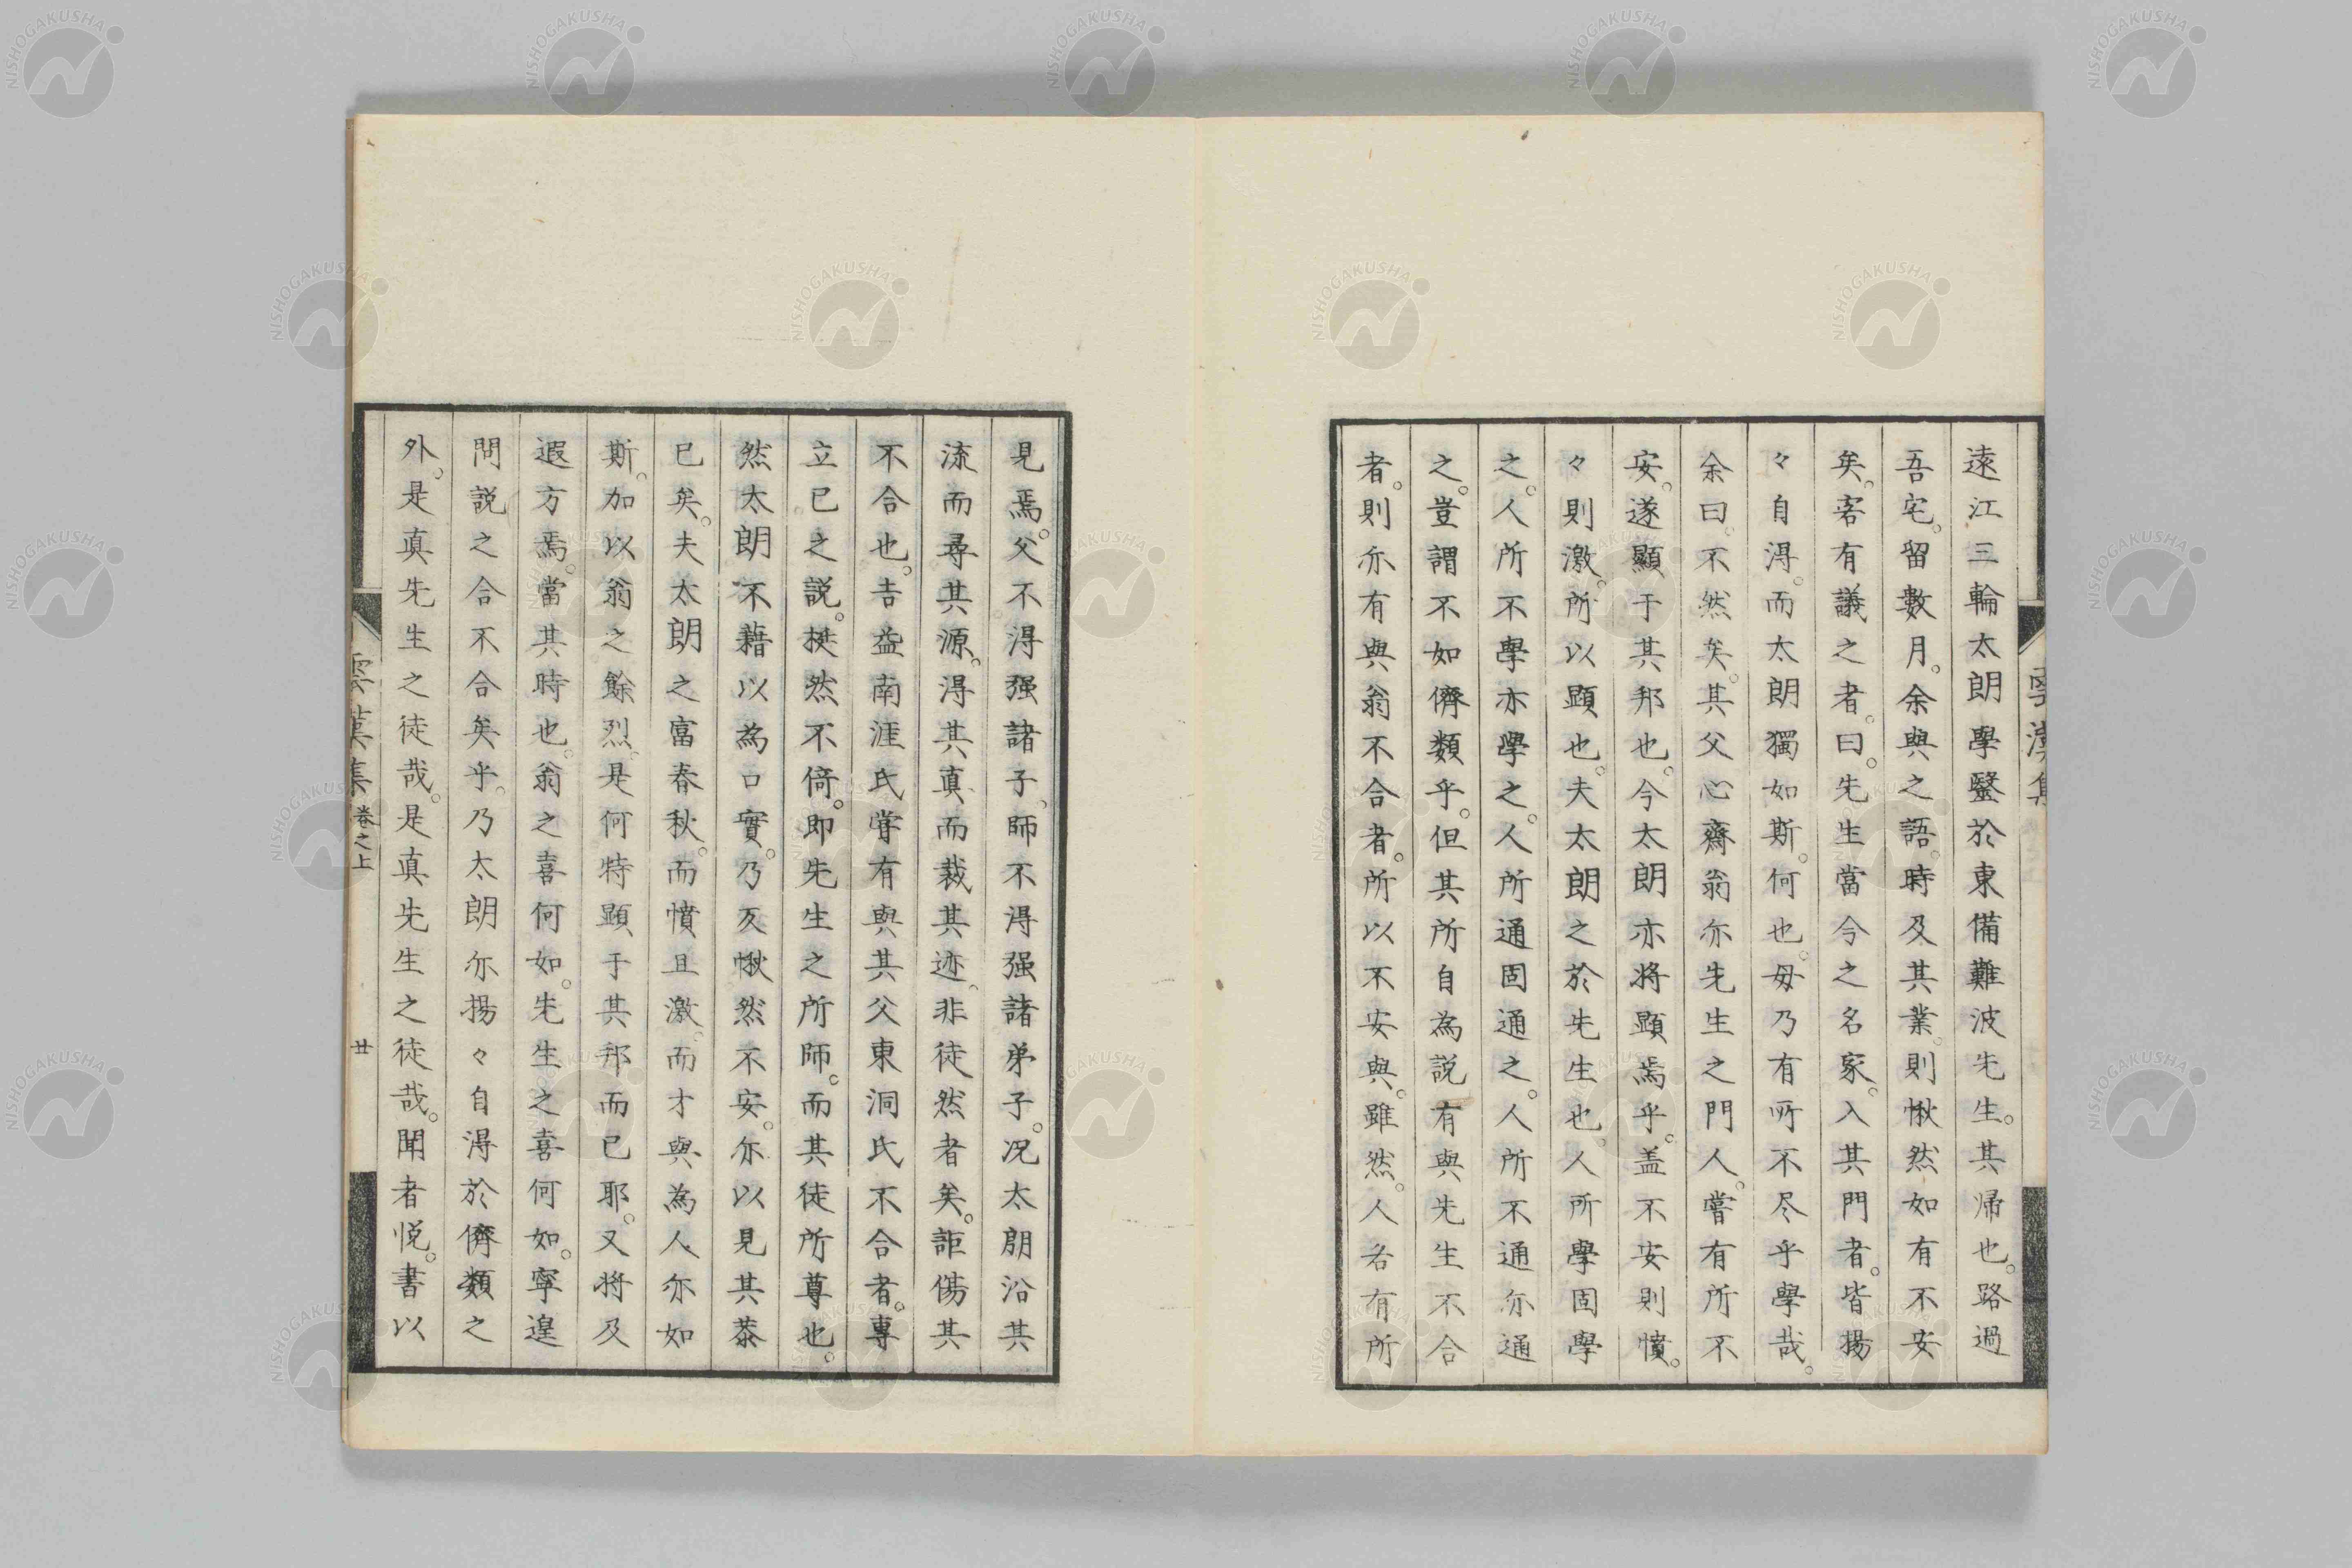 遠江三輪太朗學毉於東備難波先生。其帰也。路過
吾宅。留數月。余與之語。時及其業。則愀然如有不安
矣。客有議之者。曰。先生當今之名家。入其門者。皆揚
々自淂。而太朗獨如斯。何也。毋乃有所不尽乎學哉。
余曰。不然矣。其父心齋翁亦先生之門人。嘗有所不
安。遂顯于其邦也。今太朗亦将顕焉乎。盖不安則憤。
々則激。所以顕也。夫太朗之於先生也。人所學固學
之。人所不學亦學之。人所通固通之。人所不通亦通
之。豈謂不如儕類乎。但其所自為説有與先生不合
者。則亦有與翁不合者。所以不安與。雖然。人各有所
見焉。父不淂强諸子。師不淂强諸弟子。况太朗沿其
流而尋其源。淂其真而裁其迹。非徒然者矣。詎傷其
不合也。吉益南涯氏嘗有與其父東洞氏不合者。專
立已之説。挺然不倚。即先生之所師。而其徒所尊也。
然太朗不藉以為口實。乃反愀然不安。亦以見其恭
已矣。夫太朗之富春秋。而憤且激。而才與為人亦如
斯。加以翁之餘烈。是何特顕于其邦而已耶。又将及
遐方焉。當其時也。翁之喜何如。先生之喜何如。寧遑
問説之合不合矣乎。乃太朗亦揚々自淂於儕類之
外。是真先生之徒哉。是真先生之徒哉。聞者悦。書以
雲漢集
卷之上
廿